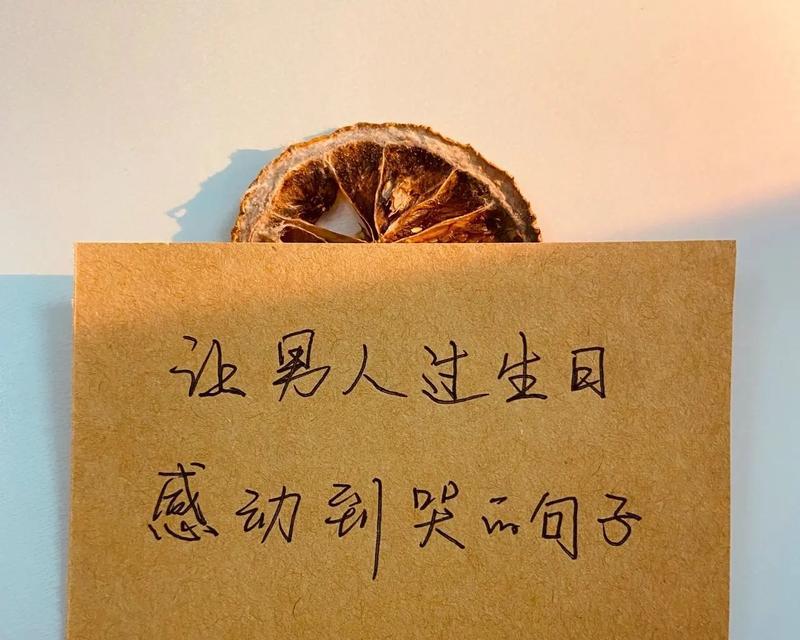 让男人过生日
感动到哭的句子